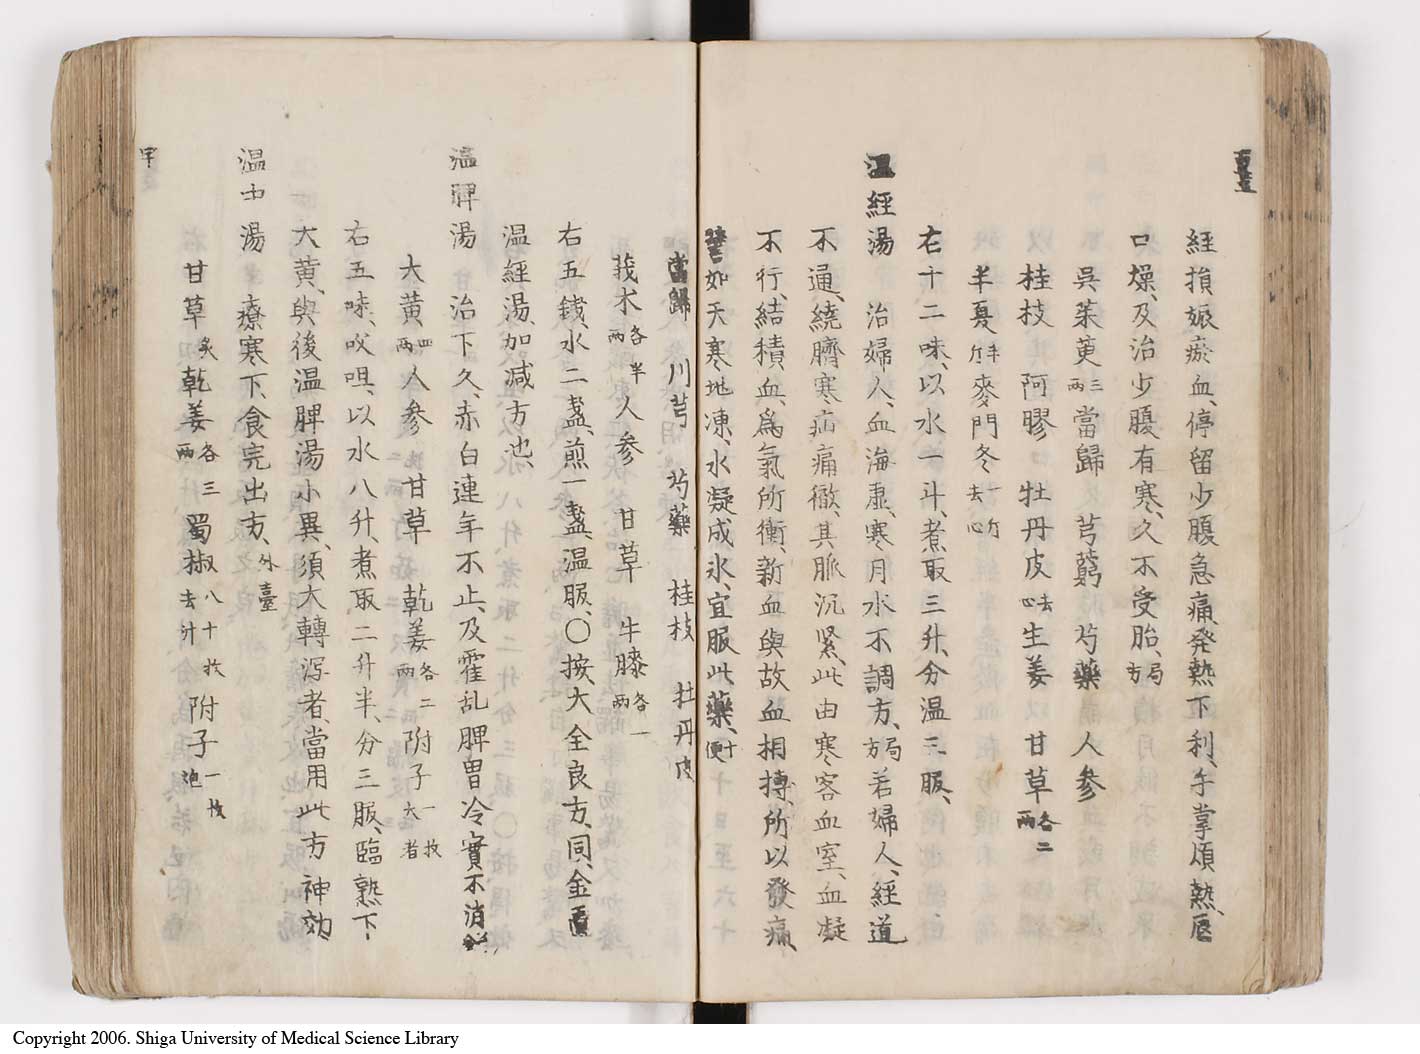 経損娠瘀血、停留少腹急痛、発熱下利、手掌煩熱、唇
口燥、及治少腹有寒、久不受胎、局方
呉茱萸三両當歸 芎藭 芍藥 人参
桂枝 阿膠 牡丹皮去心生姜 甘草各二両
半夏半斤麥門冬一斤去心
右十二味、以水一斗、煮取三升、分温三服、
温経湯 治婦人、血海虚寒月水不調方、局方若婦人、経道
不通、繞臍寒疝痛徹、其脈沉紧、此由寒客血室、血凝
不行、結積血、為氣所衝、新血與故血相摶、所以發痛、
譬如天寒地凍、水凝成氷、宜服此藥、十便
當歸 川芎 芍藥 桂枝 牡丹皮
莪朮各半両人参 甘草 牛膝各一両
右五銭、水二盞、煎一盞、温服、〇按、大全良方、同、金匱
温経湯、加減方也、
温脾湯 治下久、赤白連年不止、及霍乱脾胃冷實不消
大黄四両人参 甘草 乾姜各二両附子一枚大者
右五味、㕮咀、以水八升、煮取二升半、分三服、臨熟下
大黄、與後温脾湯小異、須大轉瀉者、當用此方神効
温中湯 療寒下、食完出方、外臺
甘草炙乾姜各三両蜀椒八十枚去汁附子一枚炮